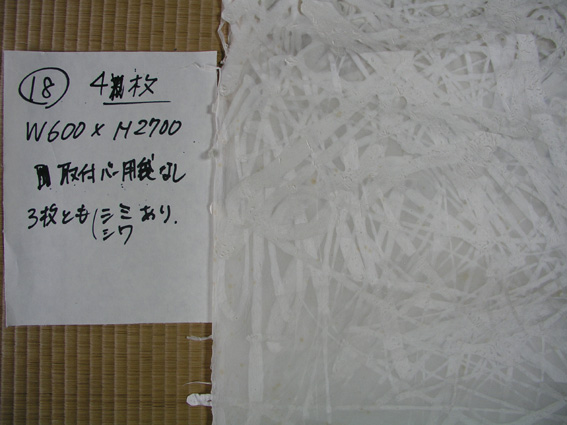 ⑱ 4枚
W600×H2700
取付バー用袋なし
3枚とも(シミ あり.
シワ